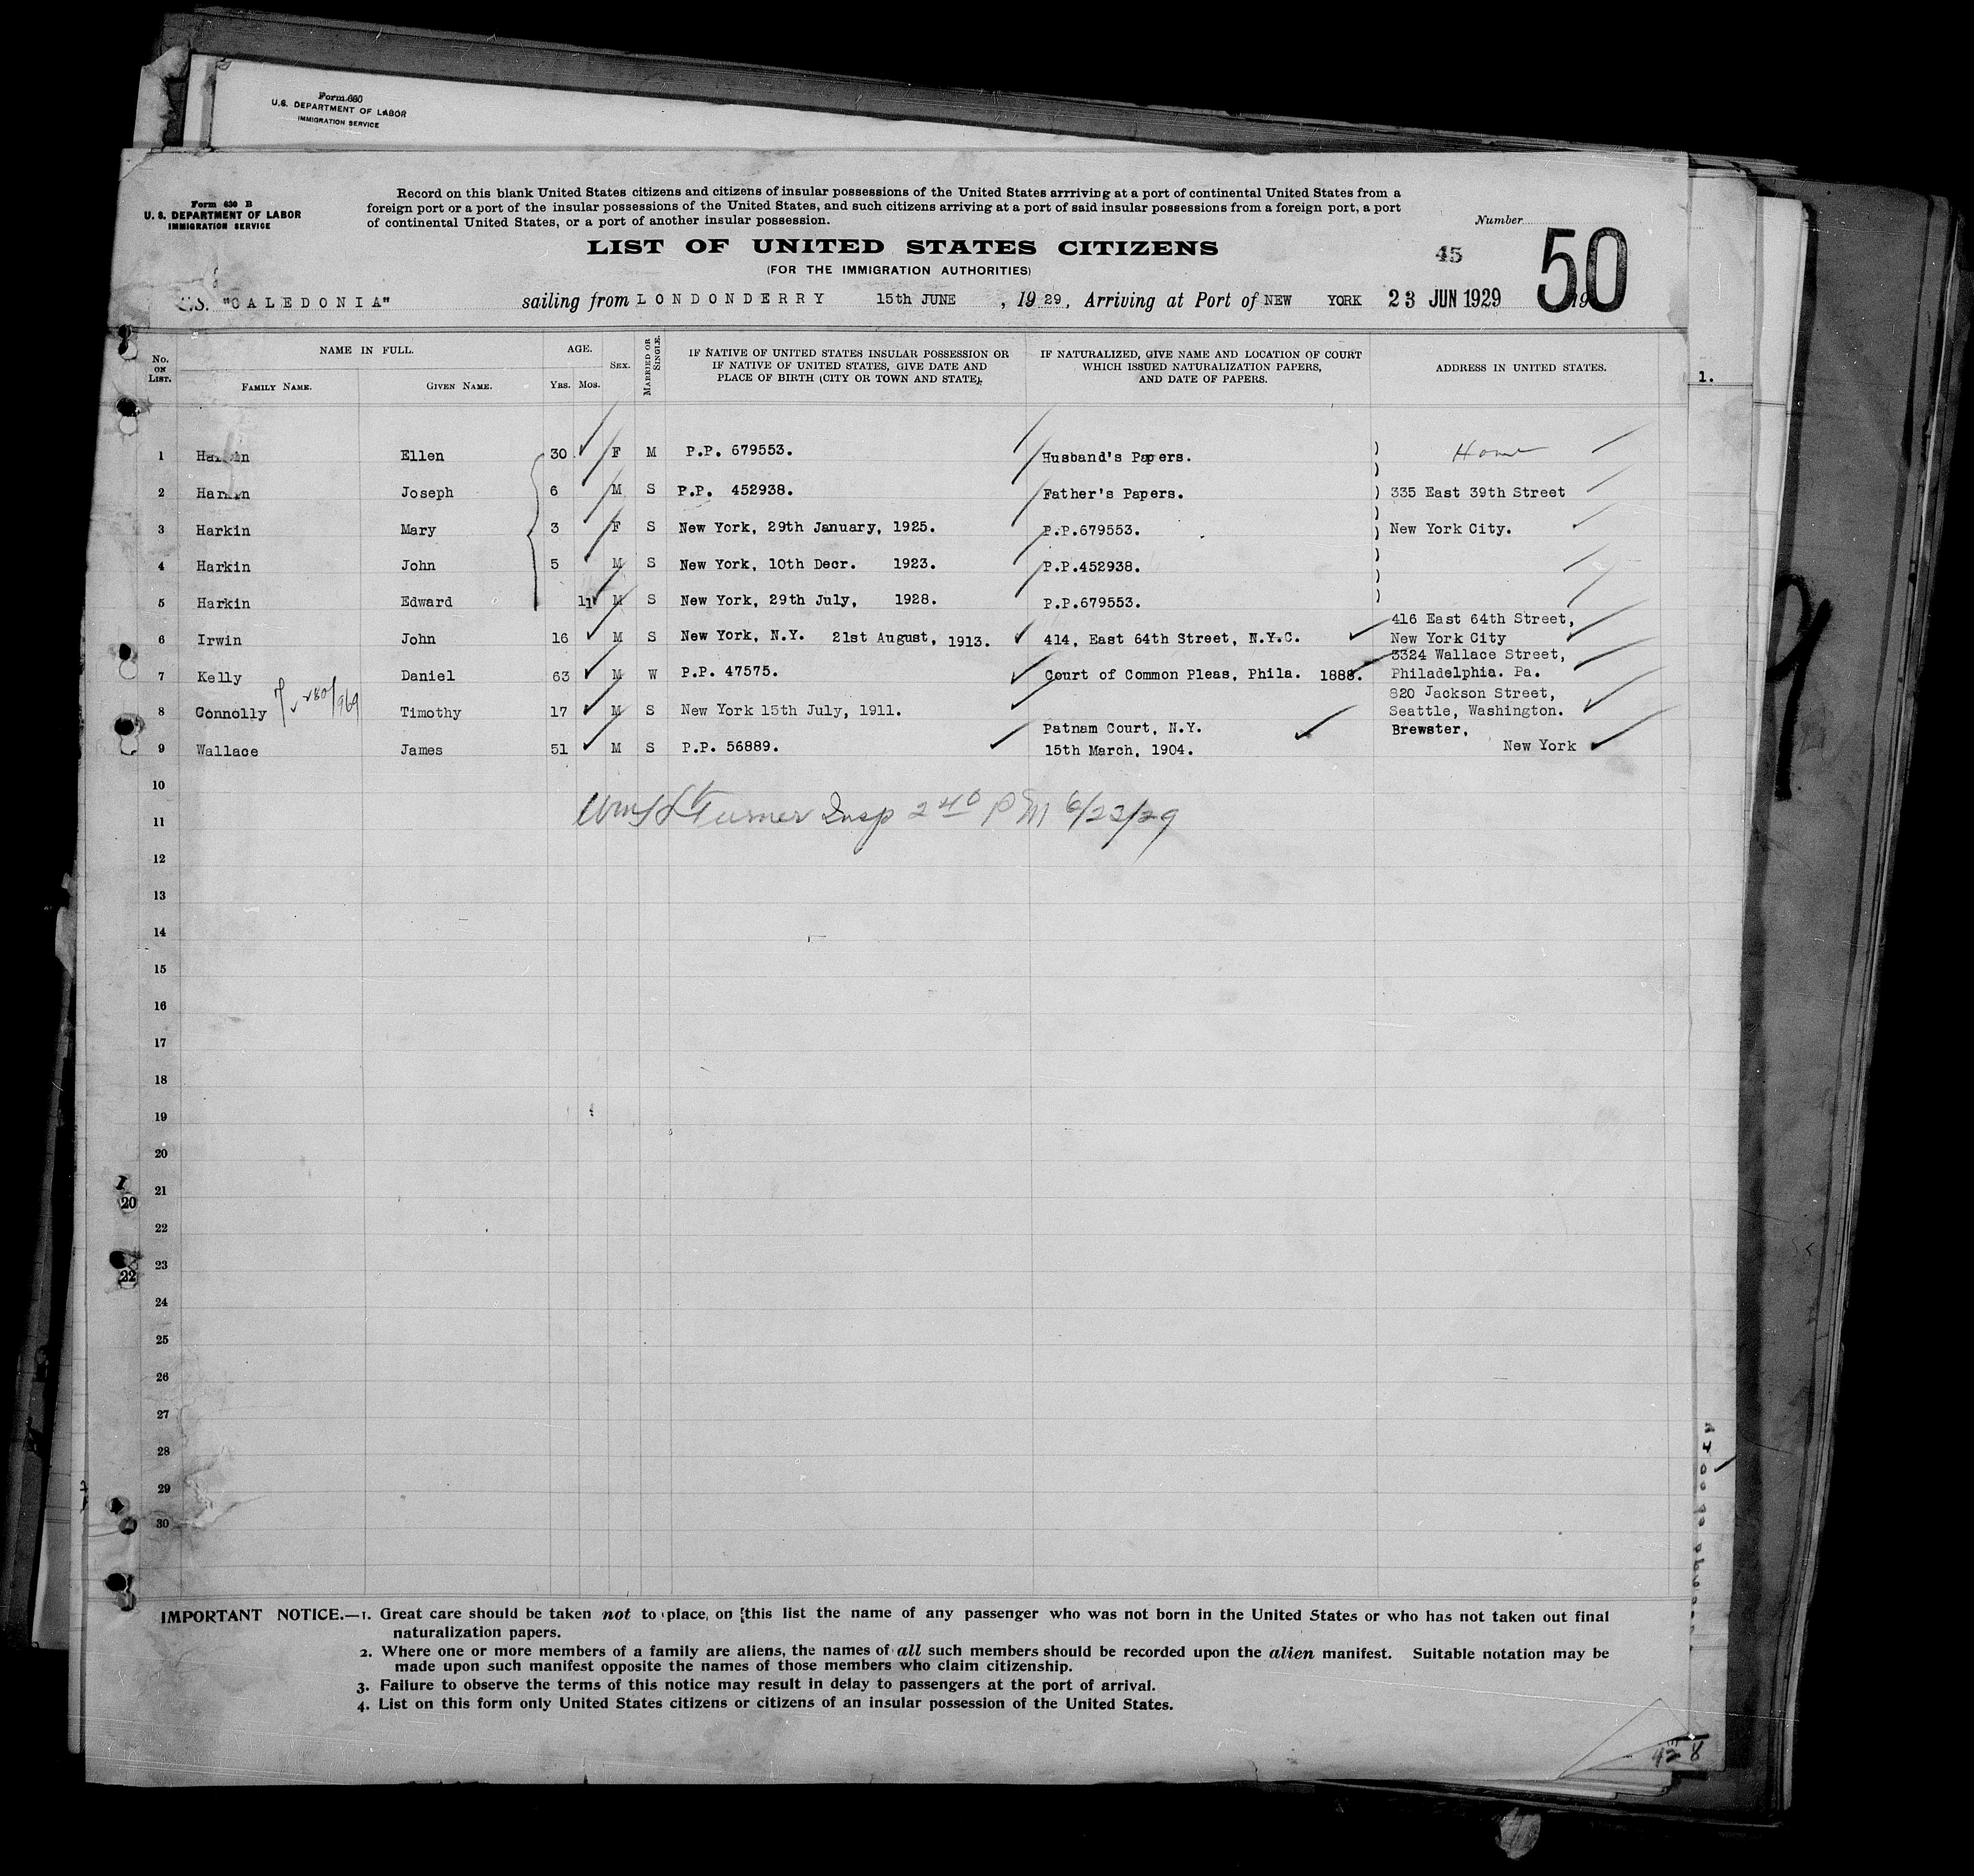 Form 680
U.S. DEPARTMENT OF LABOR
IMMIGRATION SERVICE
Form 630 B
U. S. DEPARTMENT OF LABOR
IMMIGRATION SERVICE
Record on this blank United States citizens and citizens of insular possessions of the United States arrriving at a port of continental United States from a
foreign port or a port of the insular possessions of the United States, and such citizens arriving at a port of said insular possessions from a foreign port, a port
of continental United States, or a port of another insular possession.
Number
LIST OF UNITED STATES CITIZENS
45
50
(FOR THE IMMIGRATION AUTHORITIES)
S.S. "CALEDONIA" sailing from LONDONDERRY 15th JUNE , 19 29, Arriving at Port of NEW YORK 23 JUN 1929 19
No. ON LIST. NAME IN FULL. AGE. SEX. MARRIED OR SINGLE. IF NATIVE OF UNITED STATES INSULAR POSSESSION OR IF NATIVE OF UNITED STATES, GIVE DATE AND PLACE OF BIRTH (CITY OR TOWN AND STATE). IF NATURALIZED, GIVE NAME AND LOCATION OF COURT WHICH ISSUED NATURALIZATION PAPERS, AND DATE OF PAPERS. ADDRESS IN UNITED STATES. 1.
FAMILY NAME. GIVEN NAME. YRS. MOS.
1 Harkin Ellen 30 F M P.P. 679553. Husband's Papers. ) Home
2 Harkin Joseph 6 M S P.P. 452938. Father's Papers. ) 335 East 39th Street
3 Harkin Mary 3 F S New York, 29th January, 1925. P.P.679553. ) New York City.
4 Harkin John 5 M S New York, 10th Decr. 1923. P.P.452938. )
5 Harkin Edward 11 M S New York, 29th July, 1928. P.P.679553. )
416 East 64th Street,
6 Irwin John 16 M S New York, N.Y. 21st August, 1913. 414, East 64th Street, N.Y.C. New York City
3324 Wallace Street,
7 Kelly Daniel 63 M W P.P. 47575. Court of Common Pleas, Phila. 1888. Philadelphia. Pa.
820 Jackson Street,
8 Connolly Timothy 17 M S New York 15th July, 1911. Seattle, Washington.
Patnam Court, N.Y. Brewster,
9 Wallace James 51 M S P.P. 56889. 15th March, 1904. New York
10
Turner Insp 2 40 PM 6/23/29
11
12
13
14
15
16
17
18
19
20
21
20
22
23
22
24
25
26
27
28
29
30
IMPORTANT NOTICE.—1. Great care should be taken not to place, on this list the name of any passenger who was not born in the United States or who has not taken out final
naturalization papers.
2. Where one or more members of a family are aliens, the names of all such members should be recorded upon the alien manifest. Suitable notation may be
made upon such manifest opposite the names of those members who claim citizenship.
3. Failure to observe the terms of this notice may result in delay to passengers at the port of arrival.
4. List on this form only United States citizens or citizens of an insular possession of the United States.